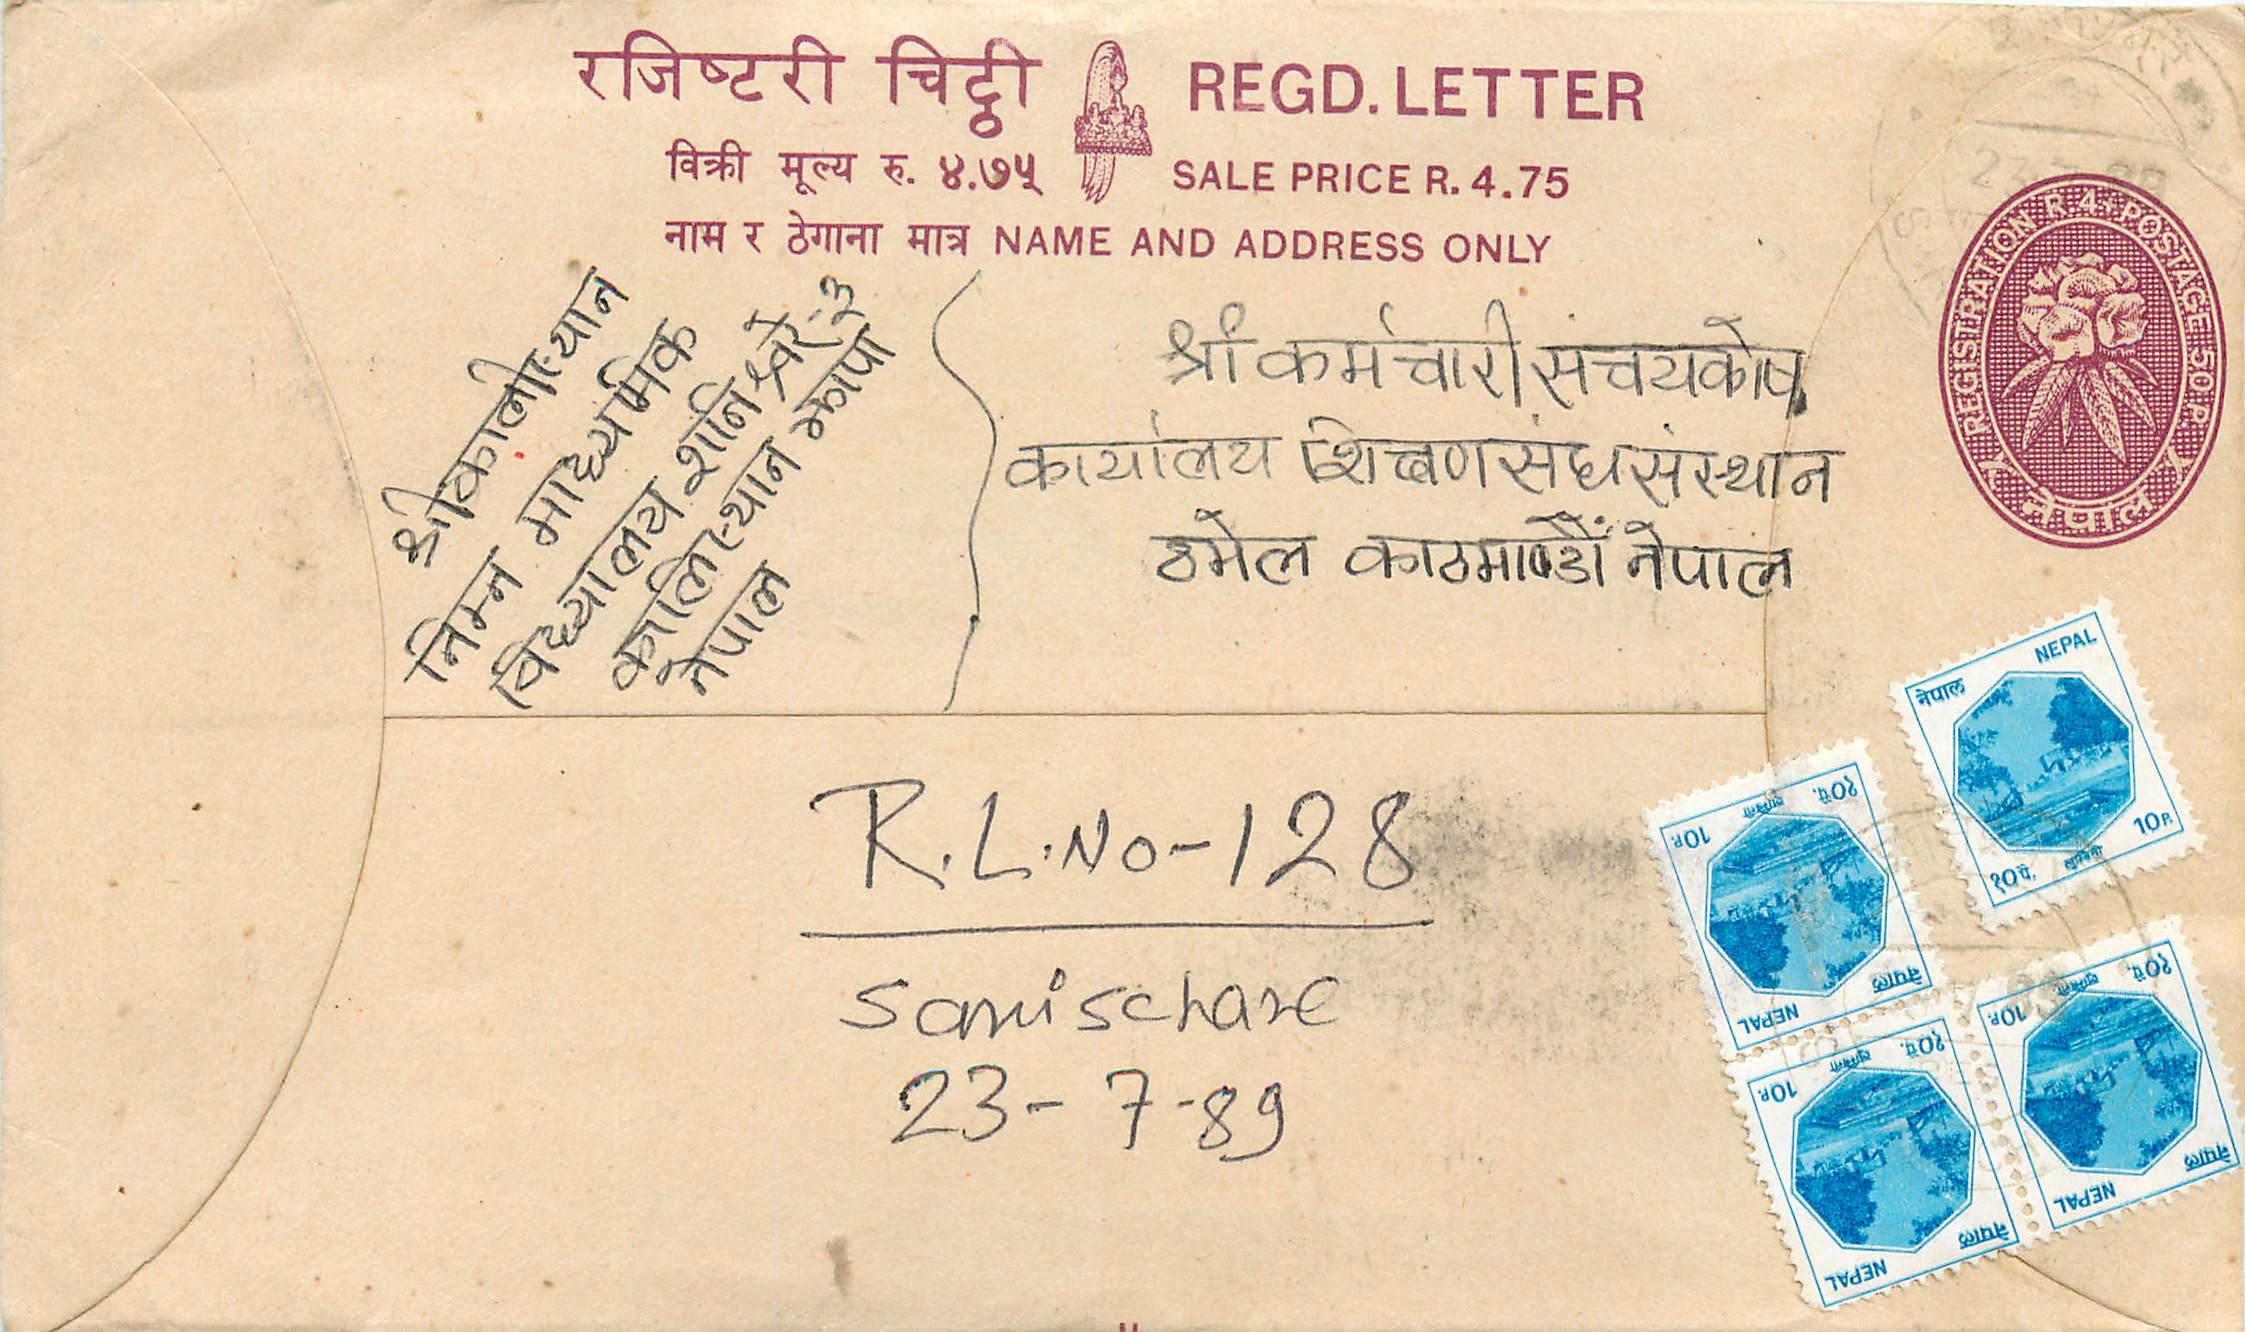 रजिष्टरी चिठ्ठी REGD. LETTER
विक्री मूल्य रु. ४.७५ SALE PRICE R. 4.75
नाम र ठेगाना मात्र NAME AND ADDRESS ONLY
REGISTRATION R.4+POSTAGE 50 P.
नेपाल
श्री कर्मचारी संचयकोष
कार्यालय शिक्षण संघ संस्थान
ठमेल काठमाण्डौं नेपाल
श्री कालीस्थान
निम्न माध्यमिक
विद्यालय शनिश्चरे-३
कालिस्थान झापा
नेपाल
R.L.No-128
Sanischare
23-7-89
नेपाल NEPAL
१०पै. लुम्बिनी 10P.
10P. लुम्बिनी १०पै.
NEPAL नेपाल
10P. लुम्बिनी १०पै.
NEPAL नेपाल
10P. लुम्बिनी १०पै.
NEPAL नेपाल